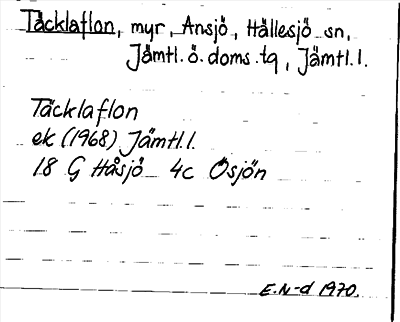 Täcklaflon, myr, Ansjö, Hällesjö sn,
Jämtl. ö. doms. tg, Jämtl. l.
Täcklaflon
ek (1968) Jämtl. l.
18 G Håsjö 4c Ösjön
E. N-d 1970.